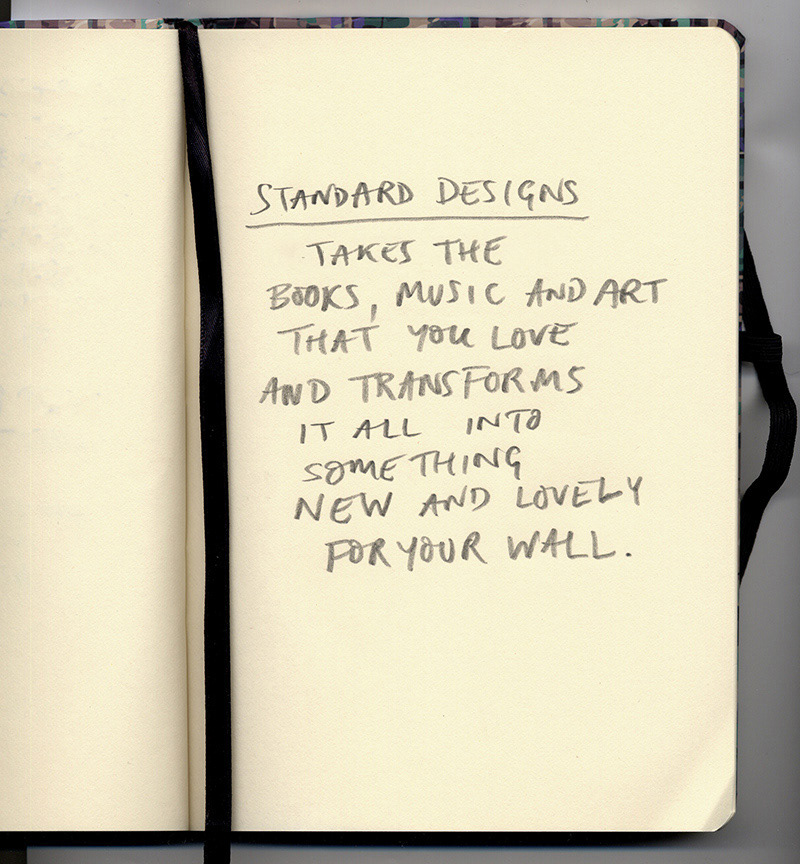 STANDARD DESIGNS
TAKES THE
BOOKS, MUSIC AND ART
THAT YOU LOVE
AND TRANSFORMS
IT ALL INTO
SOMETHING
NEW AND LOVELY
FOR YOUR WALL.